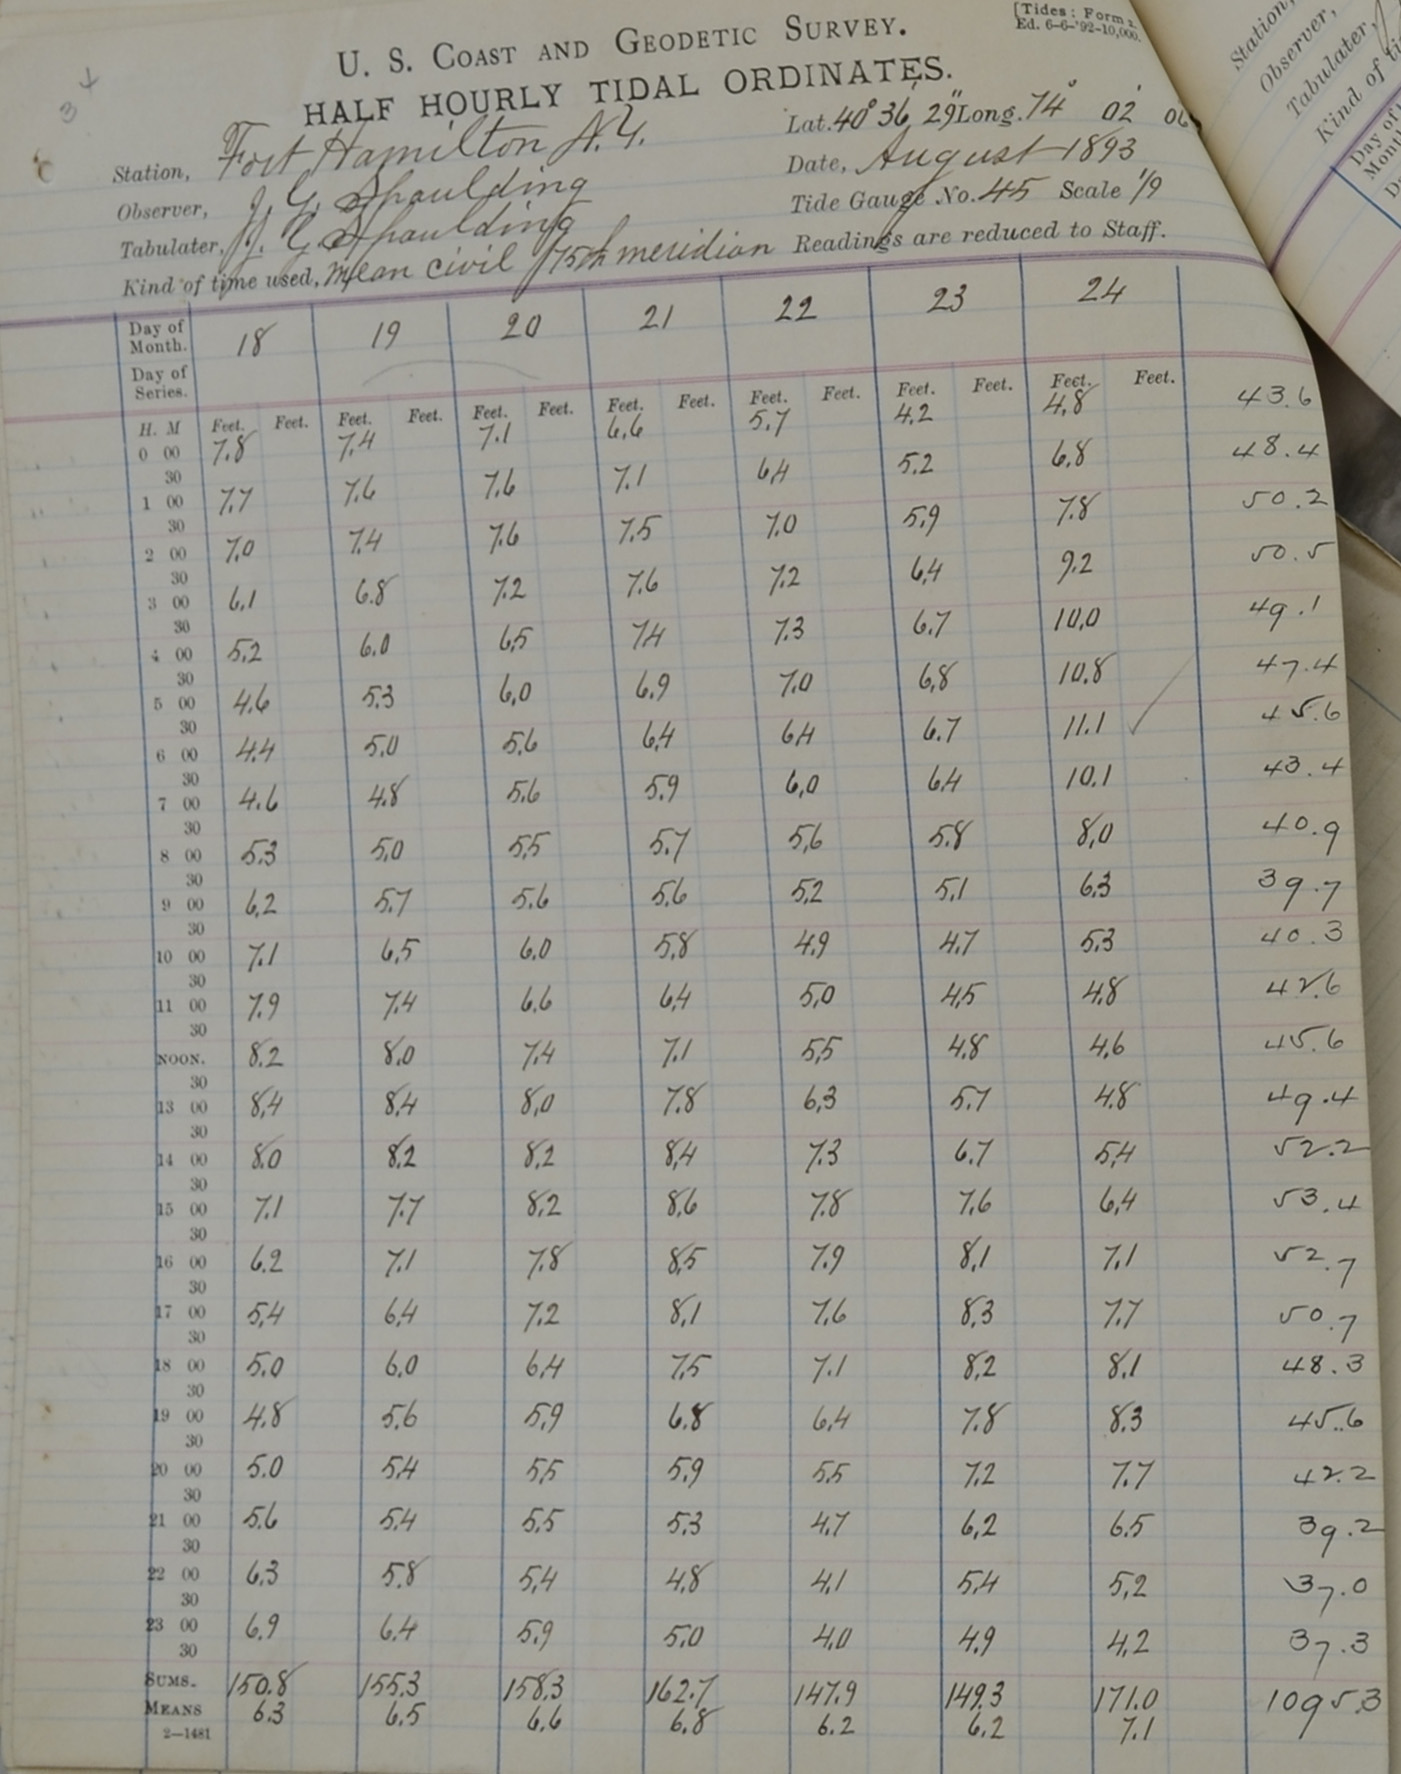 [Tides: Form 2.
Ed. 6-6-'92-10,000.
U. S. COAST AND GEODETIC SURVEY.
HALF HOURLY TIDAL ORDINATES.
Station, Fort Hamilton N.Y. Lat. 40° 36' 29" Long. 74° 02' 06
Observer, J. G. Spaulding Date, August 1893
Tabulater, J. G. Spaulding Tide Gauge No. 45 Scale 1/9
Kind of time used, Mean civil 75th meridian Readings are reduced to Staff.
Day of Month. 18 19 20 21 22 23 24
Day of Series.
H. M Feet. Feet. Feet. Feet. Feet. Feet. Feet. Feet. Feet. Feet. Feet. Feet. Feet. Feet.
0 00 7.8 7.4 7.1 6.6 5.7 4.2 4.8 43.6
30
1 00 7.7 7.6 7.6 7.1 6.4 5.2 6.8 48.4
30
2 00 7.0 7.4 7.6 7.5 7.0 5.9 7.8 50.2
30
3 00 6.1 6.8 7.2 7.6 7.2 6.4 9.2 50.5
30
4 00 5.2 6.0 6.5 7.4 7.3 6.7 10.0 49.1
30
5 00 4.6 5.3 6.0 6.9 7.0 6.8 10.8 47.4
30
6 00 4.4 5.0 5.6 6.4 6.4 6.7 11.1 45.6
30
7 00 4.6 4.8 5.6 5.9 6.0 6.4 10.1 43.4
30
8 00 5.3 5.0 5.5 5.7 5.6 5.8 8.0 40.9
30
9 00 6.2 5.7 5.6 5.6 5.2 5.1 6.3 39.7
30
10 00 7.1 6.5 6.0 5.8 4.9 4.7 5.3 40.3
30
11 00 7.9 7.4 6.6 6.4 5.0 4.5 4.8 42.6
30
NOON. 8.2 8.0 7.4 7.1 5.5 4.8 4.6 45.6
30
13 00 8.4 8.4 8.0 7.8 6.3 5.7 4.8 49.4
30
14 00 8.0 8.2 8.2 8.4 7.3 6.7 5.4 52.2
30
15 00 7.1 7.7 8.2 8.6 7.8 7.6 6.4 53.4
30
16 00 6.2 7.1 7.8 8.5 7.9 8.1 7.1 52.7
30
17 00 5.4 6.4 7.2 8.1 7.6 8.3 7.7 50.7
30
18 00 5.0 6.0 6.4 7.5 7.1 8.2 8.1 48.3
30
19 00 4.8 5.6 5.9 6.8 6.4 7.8 8.3 45.6
30
20 00 5.0 5.4 5.5 5.9 5.5 7.2 7.7 42.2
30
21 00 5.6 5.4 5.5 5.3 4.7 6.2 6.5 39.2
30
22 00 6.3 5.8 5.4 4.8 4.1 5.4 5.2 37.0
30
23 00 6.9 6.4 5.9 5.0 4.0 4.9 4.2 37.3
30
SUMS. 150.8 155.3 158.3 162.7 147.9 149.3 171.0 1095.3
MEANS 6.3 6.5 6.6 6.8 6.2 6.2 7.1
2—1481
Station,
Observer,
Tabulater,
Kind of
Day of